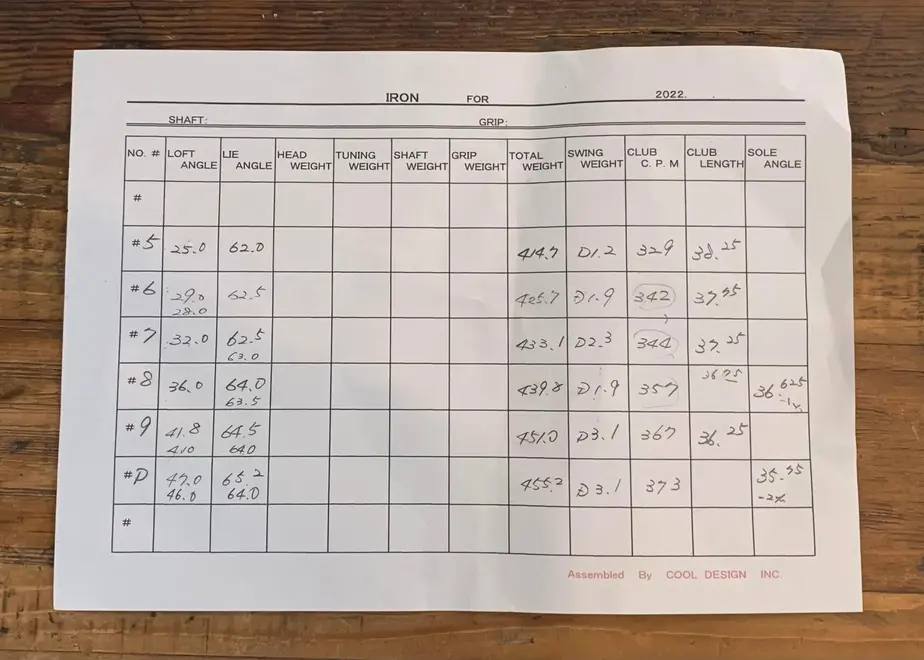 IRON FOR 2022.
SHAFT: GRIP:
NO. # LOFT ANGLE LIE ANGLE HEAD WEIGHT TUNING WEIGHT SHAFT WEIGHT GRIP WEIGHT TOTAL WEIGHT SWING WEIGHT CLUB C. P. M CLUB LENGTH SOLE ANGLE
#
#5 25.0 62.0 414.7 D1.2 329 38.25
#6 29.0 62.5 425.7 D1.9 342 37.75
28.0
#7 32.0 62.5 433.1 D2.3 344 37.25
63.0
#8 36.0 64.0 439.8 D1.9 357 36.75 36.625
63.5
#9 41.8 64.5 451.0 D3.1 367 36.25
41.0 64.0
#P 47.0 65.2 455.2 D3.1 373 35.75
46.0 64.0 -2
#
Assembled By COOL DESIGN INC